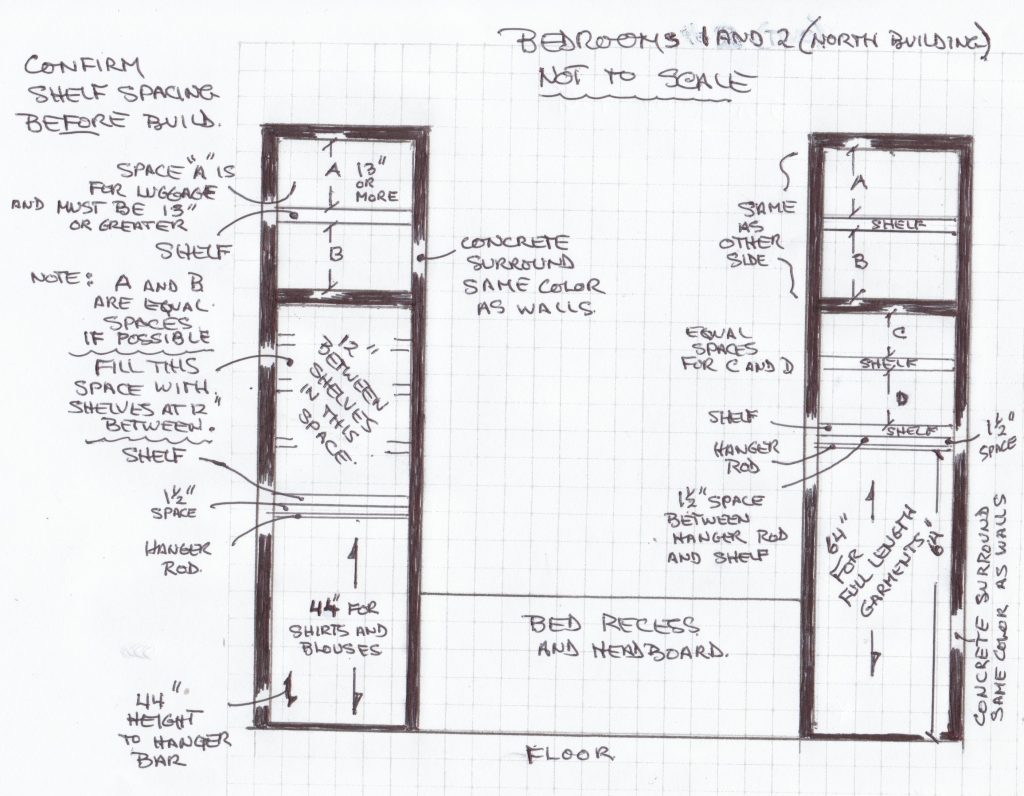 BEDROOMS 1 AND 2 (NORTH BUILDING)
NOT TO SCALE
CONFIRM
SHELF SPACING
BEFORE BUILD.
SPACE "A" IS
FOR LUGGAGE
AND MUST BE 13"
OR GREATER
SHELF
NOTE: A AND B
ARE EQUAL
SPACES
IF POSSIBLE
FILL THIS
SPACE WITH
SHELVES AT 12"
BETWEEN.
SHELF
1½"
SPACE
HANGER
ROD.
44"
HEIGHT
TO HANGER
BAR
A 13"
OR
MORE
B
12"
BETWEEN
SHELVES
IN THIS
SPACE.
44" FOR
SHIRTS AND
BLOUSES
CONCRETE
SURROUND
SAME COLOR
AS WALLS.
BED RECESS
AND HEADBOARD.
FLOOR
SAME
AS
OTHER
SIDE
EQUAL
SPACES
FOR C AND D
SHELF
HANGER
ROD
1½" SPACE
BETWEEN
HANGER ROD
AND SHELF
A
SHELF
B
C
SHELF
D
SHELF
1½"
SPACE
64"
FOR
FULL LENGTH
GARMENTS.
64"
CONCRETE SURROUND
SAME COLOR AS WALLS